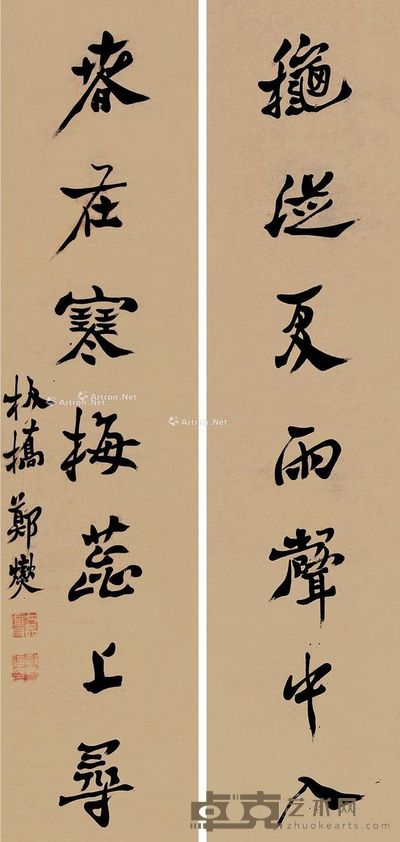 龝從夏雨聲中入
春在寒梅蕊上尋
板橋鄭燮
Artron.Net
Artron.Net
Artron.Net
卓克艺术网
zhuokearts.com